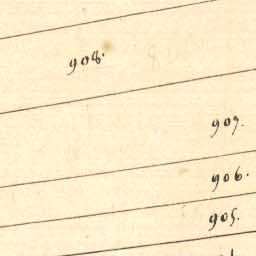 908.
907.
906.
905.